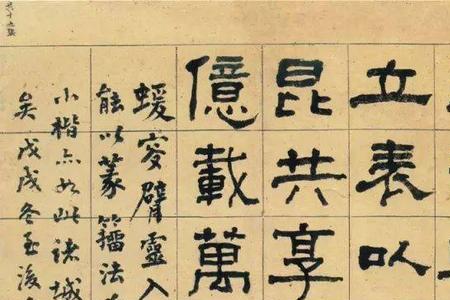 立表以
昆共享
億載萬
蝯叜臂靈入
能以篆籀法
小楷亦如此諸城
矣戊戌冬至後